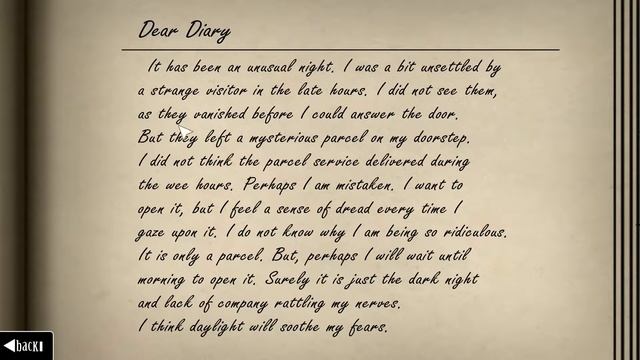 Dear Diary
It has been an unusual night. I was a bit unsettled by
a strange visitor in the late hours. I did not see them,
as they vanished before I could answer the door.
But they left a mysterious parcel on my doorstep.
I did not think the parcel service delivered during
the wee hours. Perhaps I am mistaken. I want to
open it, but I feel a sense of dread every time I
gaze upon it. I do not know why I am being so ridiculous.
It is only a parcel. But, perhaps I will wait until
morning to open it. Surely it is just the dark night
and lack of company rattling my nerves.
I think daylight will soothe my fears.
back